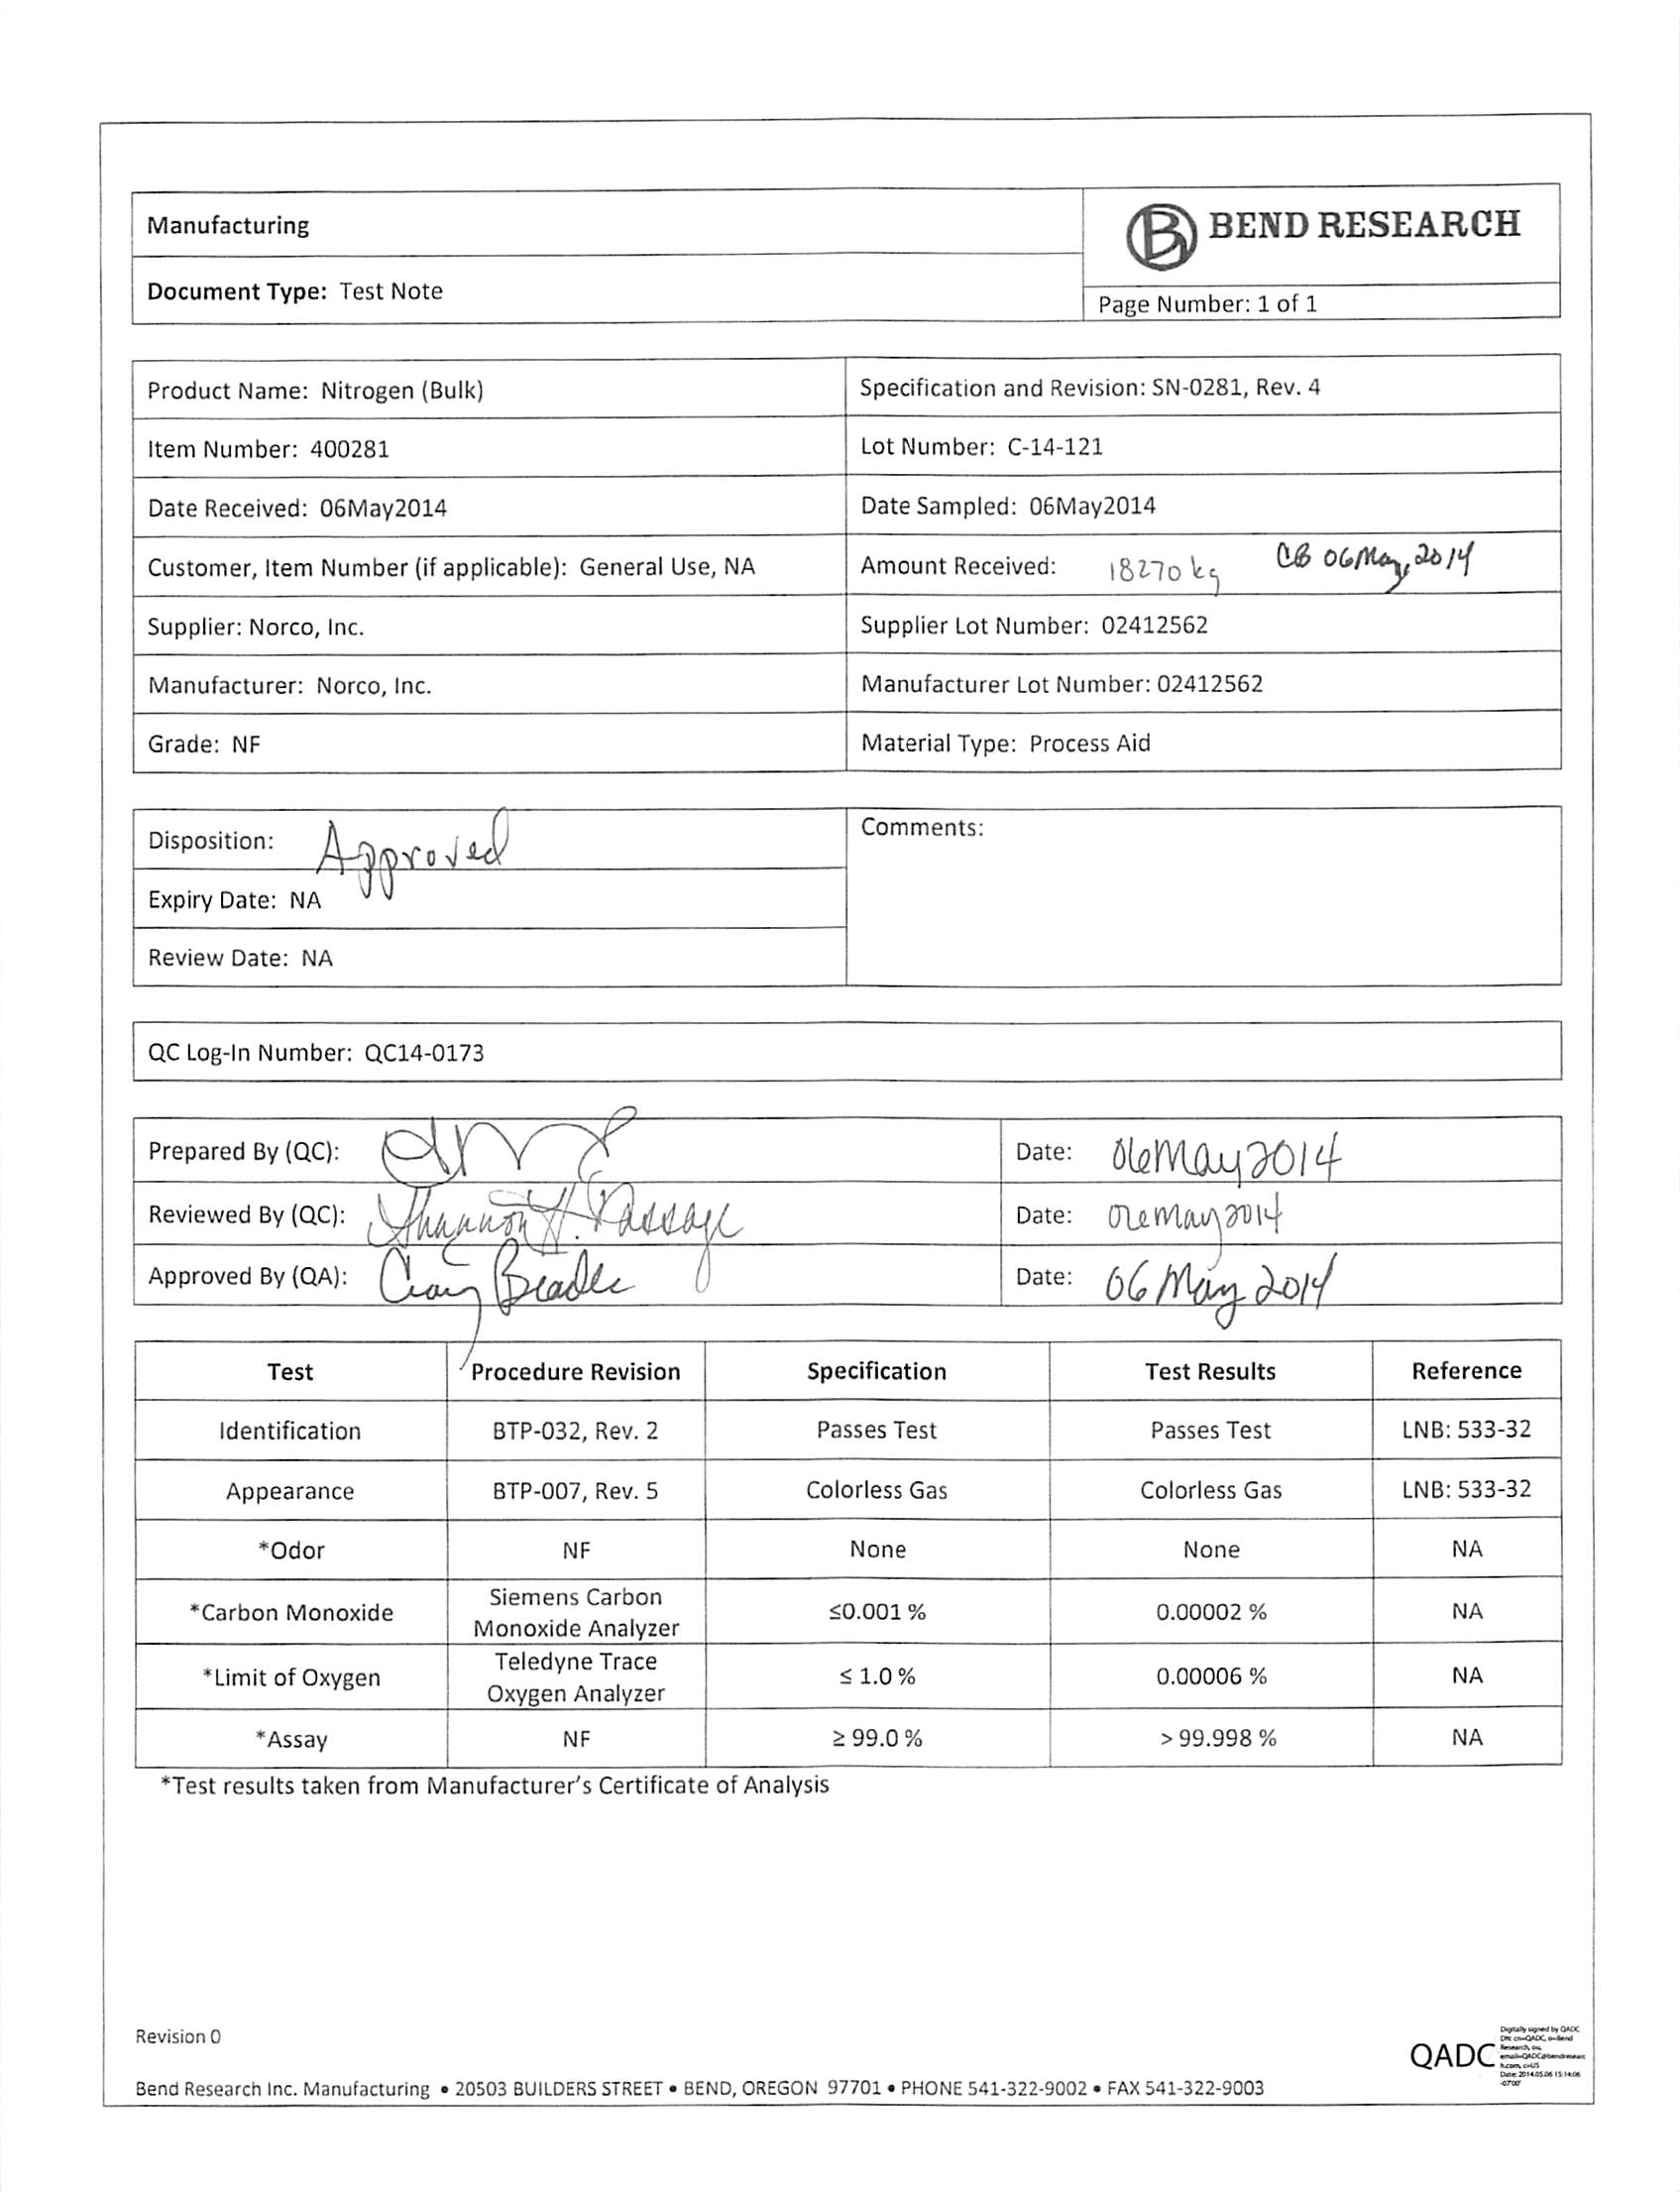 Manufacturing
BEND RESEARCH
Document Type: Test Note
Page Number: 1 of 1
Product Name: Nitrogen (Bulk)
Specification and Revision: SN-0281, Rev. 4
Item Number: 400281
Lot Number: C-14-121
Date Received: 06May2014
Date Sampled: 06May2014
Customer, Item Number (if applicable): General Use, NA
Amount Received: 18270 kg CB 06May,2014
Supplier: Norco, Inc.
Supplier Lot Number: 02412562
Manufacturer: Norco, Inc.
Manufacturer Lot Number: 02412562
Grade: NF
Material Type: Process Aid
Disposition: Approved
Comments:
Expiry Date: NA
Review Date: NA
QC Log-In Number: QC14-0173
Prepared By (QC):
Date: 06May2014
Reviewed By (QC): Shannon H. Kassage
Date: 06May2014
Approved By (QA): Craig Beadle
Date: 06 May 2014
Test Procedure Revision Specification Test Results Reference
Identification BTP-032, Rev. 2 Passes Test Passes Test LNB: 533-32
Appearance BTP-007, Rev. 5 Colorless Gas Colorless Gas LNB: 533-32
*Odor NF None None NA
*Carbon Monoxide Siemens Carbon Monoxide Analyzer ≤0.001 % 0.00002 % NA
*Limit of Oxygen Teledyne Trace Oxygen Analyzer ≤ 1.0 % 0.00006 % NA
*Assay NF ≥ 99.0 % > 99.998 % NA
*Test results taken from Manufacturer's Certificate of Analysis
Revision 0
QADC
Digitally signed by QADC
DN: cn=QADC, o=Bend
Research, ou,
email=QADC@bendresearc
h.com, c=US
Date: 2014.05.06 15:14:06
-07'00'
Bend Research Inc. Manufacturing • 20503 BUILDERS STREET • BEND, OREGON 97701 • PHONE 541-322-9002 • FAX 541-322-9003